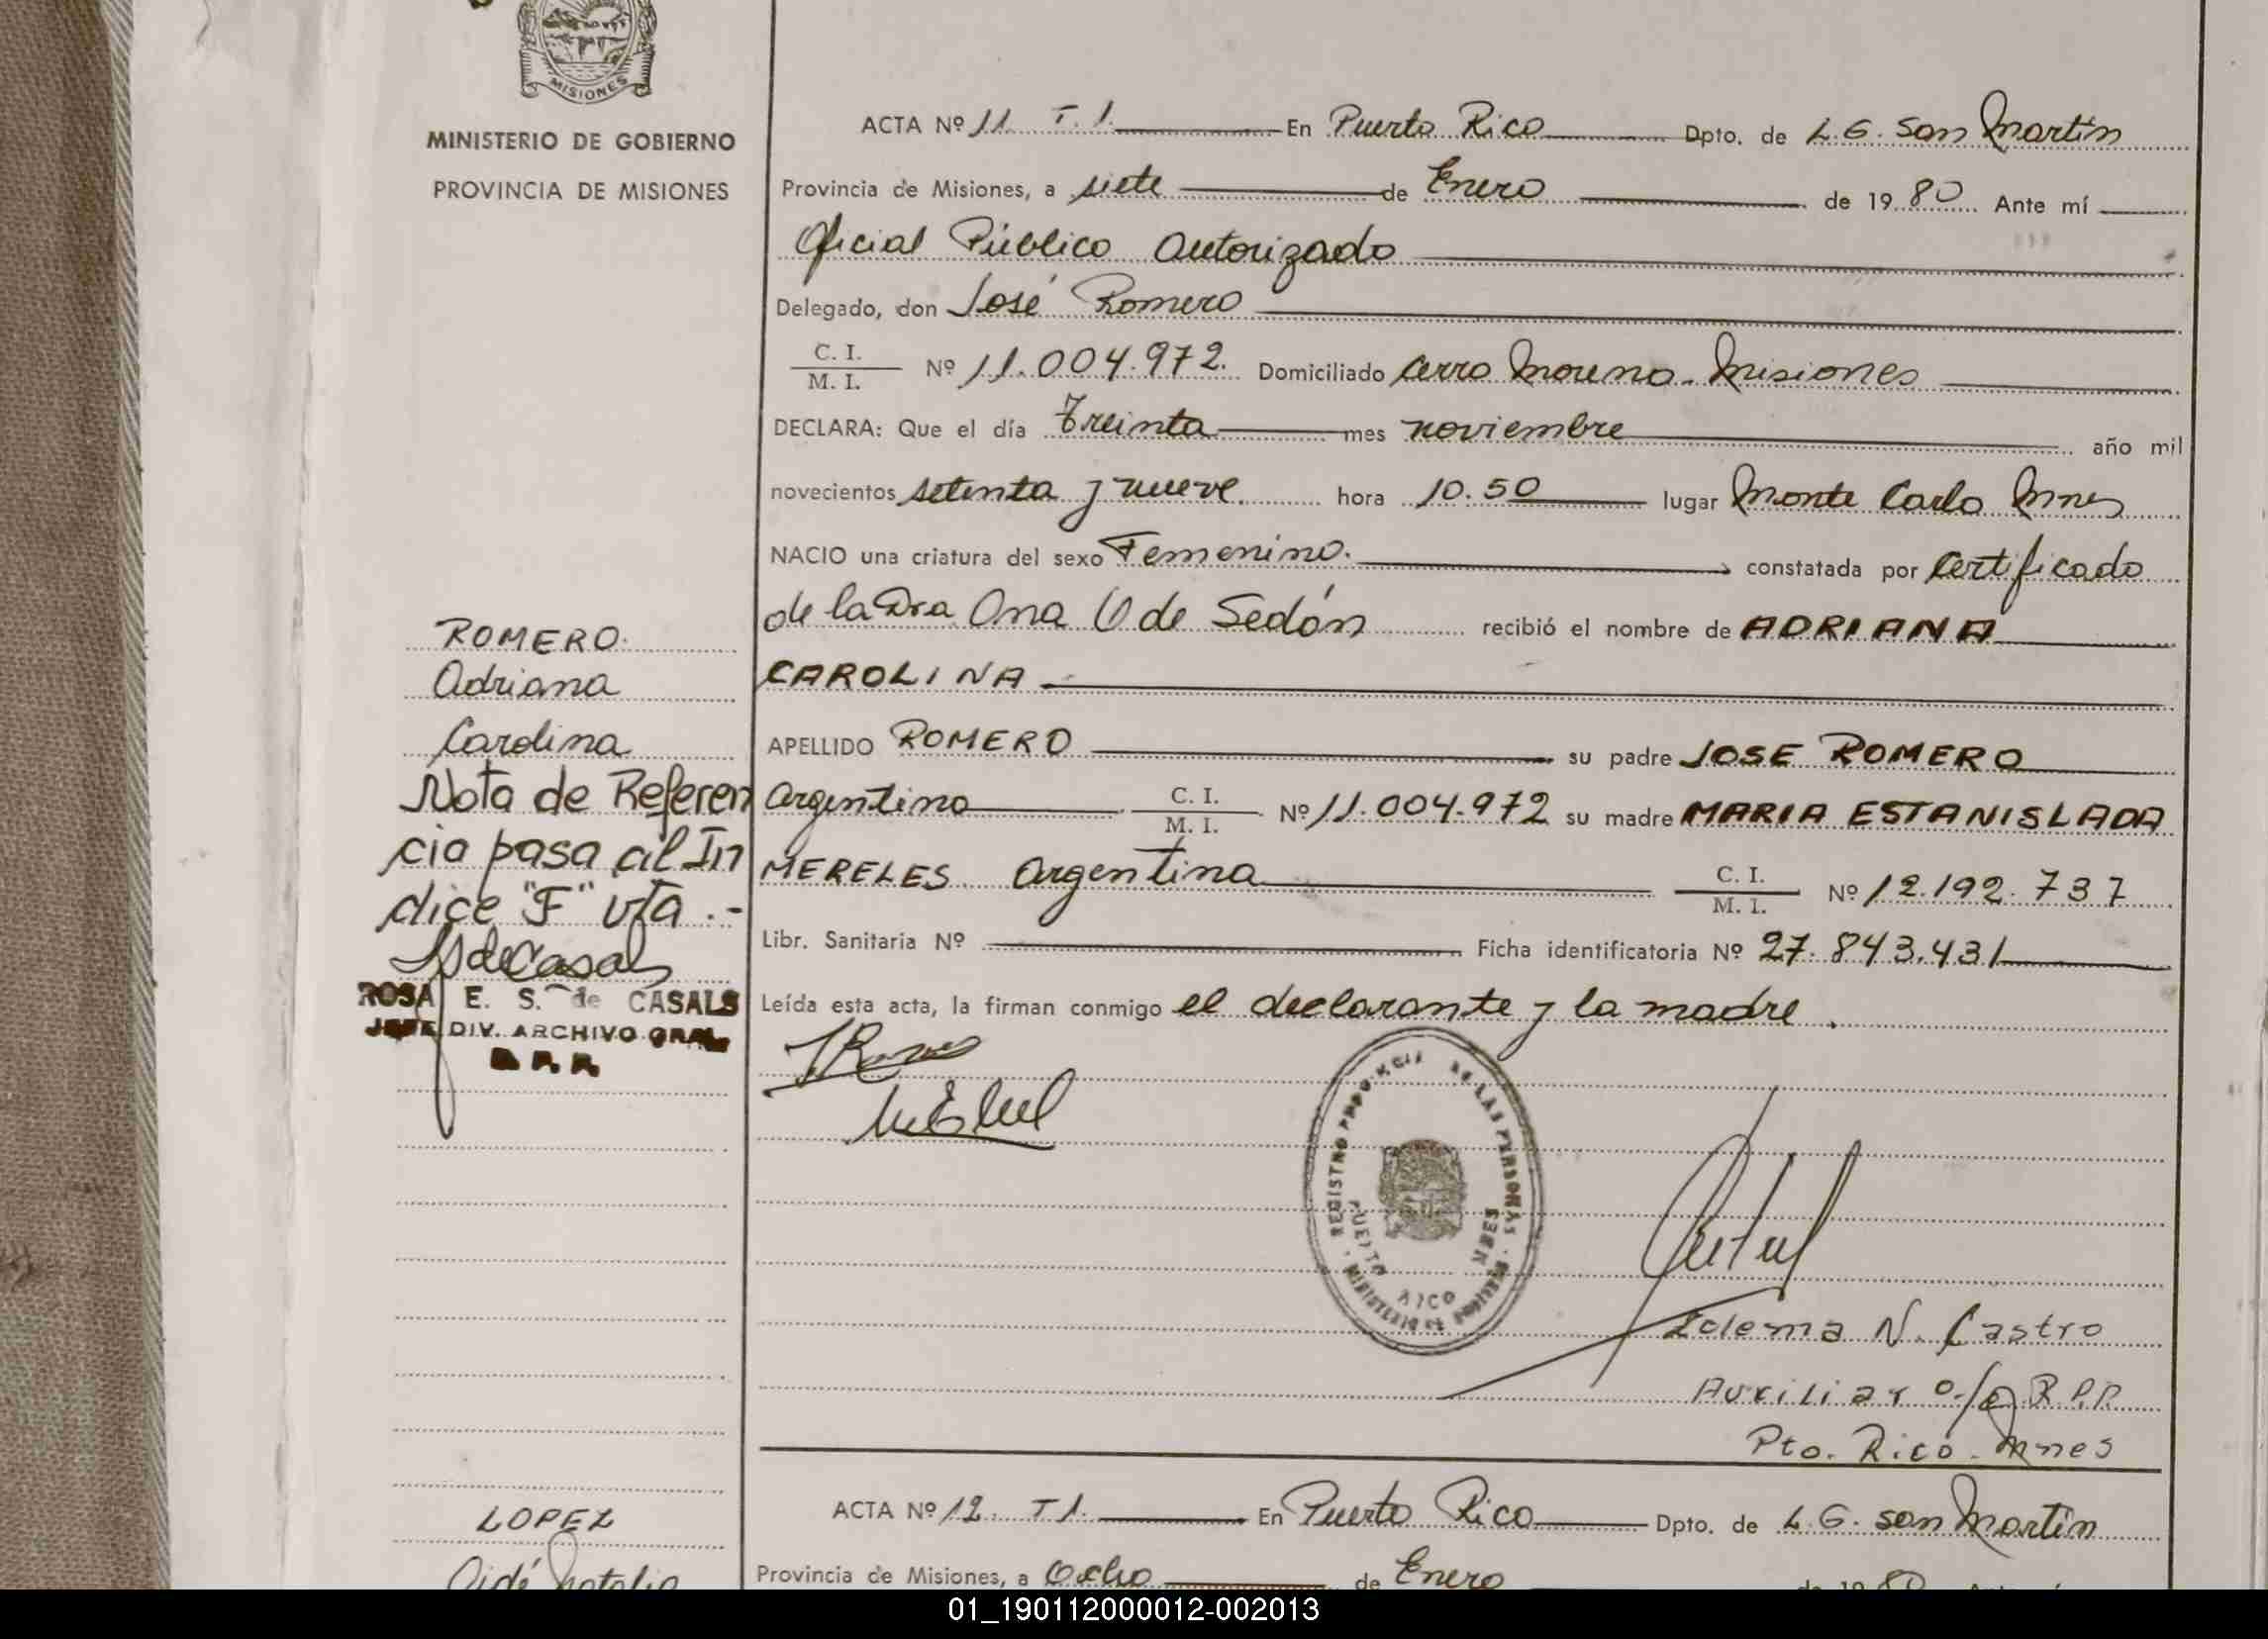 MISIONES
MINISTERIO DE GOBIERNO
PROVINCIA DE MISIONES
ACTA Nº 11 T. 1. En Puerto Rico Dpto. de L. G. San Martín
Provincia de Misiones, a siete de Enero de 1980 Ante mí
Oficial Público Autorizado
Delegado, don José Romero
C. I.
M. I. Nº 11.004.972. Domiciliado Cerro Moreno - Misiones
DECLARA: Que el día Treinta mes noviembre año mil
novecientos setenta y nueve hora 10.50 lugar Monte Carlo Mnes
NACIO una criatura del sexo Femenino. constatada por Certificado
de la Dra Ana de Sedón recibió el nombre de ADRIANA
CAROLINA
APELLIDO ROMERO su padre JOSE ROMERO
Argentino C. I.
M. I. Nº 11.004.972 su madre MARIA ESTANISLADA
MERELES Argentina C. I.
M. I. Nº 12.192.737
Libr. Sanitaria Nº Ficha identificatoria Nº 27.843.431
Leída esta acta, la firman conmigo el declarante y la madre.
ROMERO
Adriana
Carolina
Nota de Referen
cia pasa al In
dice "F" vta.-
ROSA E. S. de CASALS
JEFE DIV. ARCHIVO GRAL
REGISTRO PROVINCIAL DE LAS PERSONAS
PUERTO RICO
MNES
N. Castro
Auxiliar R.P.P.
Pto. Rico - Mnes
ACTA Nº 12. T 1. En Puerto Rico Dpto. de L. G. San Martín
Provincia de Misiones, a Ocho de Enero de 1980
LOPEZ
01_190112000012-002013